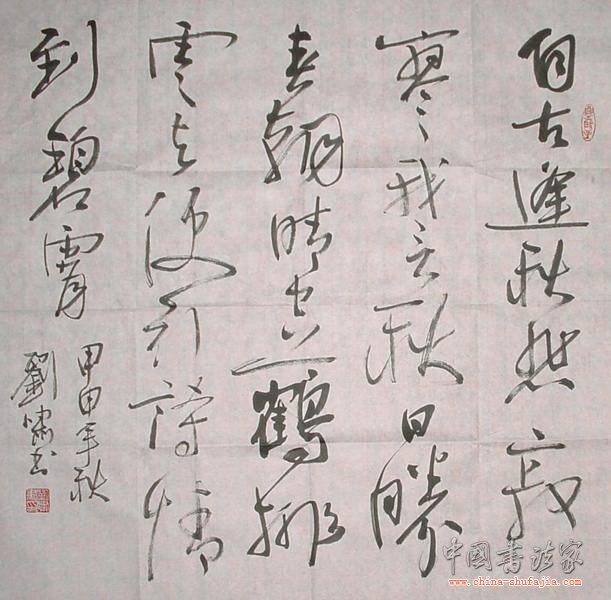 自古逢秋悲寂
寥我言秋日勝
春朝晴空一鶴排
雲上便引詩情
到碧霄
甲申年秋
劉嘯書
中國書法家
www.china-shufajia.com